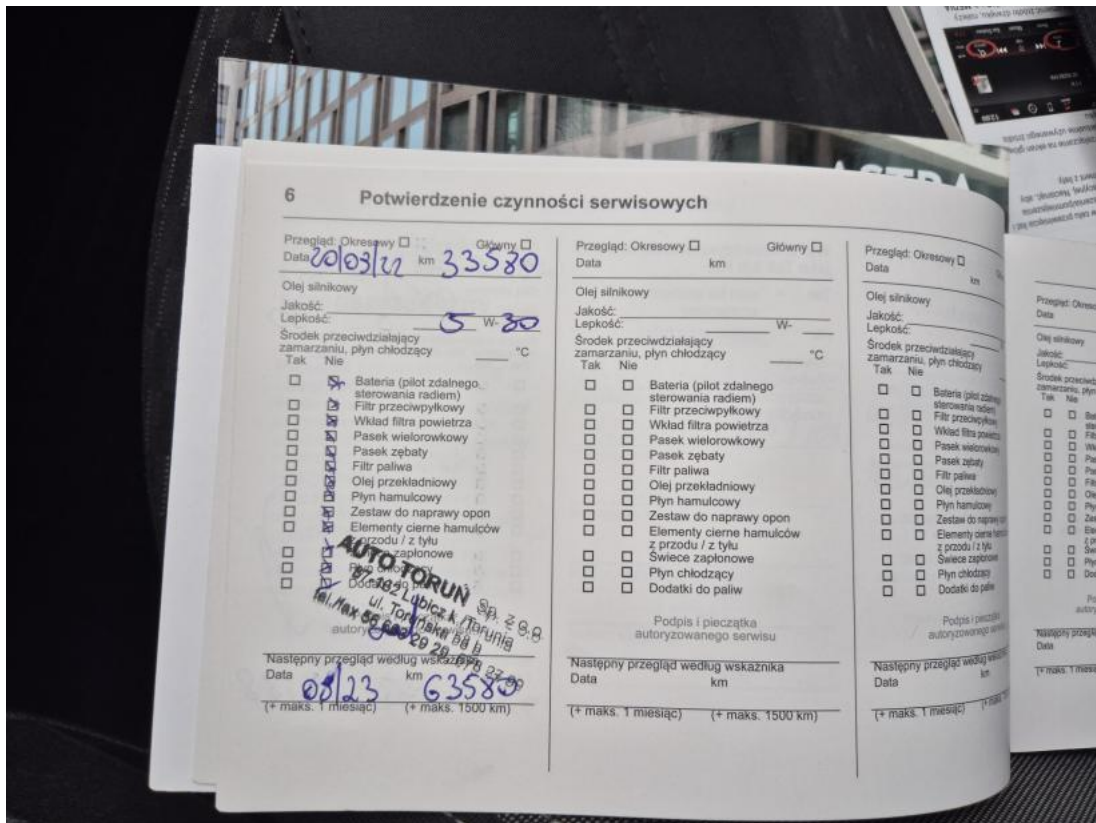 ASTRA
6 Potwierdzenie czynności serwisowych
Przegląd: Okresowy Główny
Data 20/03/22 km 33580
Olej silnikowy
Jakość:
Lepkość: 5 W-30
Środek przeciwdziałający
zamarzaniu, płyn chłodzący °C
Tak Nie
Bateria (pilot zdalnego
sterowania radiem)
Filtr przeciwpyłkowy
Wkład filtra powietrza
Pasek wielorowkowy
Pasek zębaty
Filtr paliwa
Olej przekładniowy
Płyn hamulcowy
Zestaw do naprawy opon
Elementy cierne hamulców
z przodu / z tyłu
zapłonowe
Płyn chłodzący
Dodatki do
AUTO TORUŃ Sp. z o.o.
87-162 Lubicz k./Torunia
ul. Toruńska
tel./fax 56
Następny przegląd według wskaźnika
Data 03/23 km 63580
(+ maks. 1 miesiąc) (+ maks. 1500 km)
Przegląd: Okresowy Główny
Data km
Olej silnikowy
Jakość:
Lepkość: W-
Środek przeciwdziałający
zamarzaniu, płyn chłodzący °C
Tak Nie
Bateria (pilot zdalnego
sterowania radiem)
Filtr przeciwpyłkowy
Wkład filtra powietrza
Pasek wielorowkowy
Pasek zębaty
Filtr paliwa
Olej przekładniowy
Płyn hamulcowy
Zestaw do naprawy opon
Elementy cierne hamulców
z przodu / z tyłu
Świece zapłonowe
Płyn chłodzący
Dodatki do paliw
Podpis i pieczątka
autoryzowanego serwisu
Następny przegląd według wskaźnika
Data km
(+ maks. 1 miesiąc) (+ maks. 1500 km)
Przegląd: Okresowy
Data km
Olej silnikowy
Jakość:
Lepkość:
Środek przeciwdziałający
zamarzaniu, płyn chłodzący
Tak Nie
Bateria (pilot zdalnego
sterowania radiem)
Filtr przeciwpyłkowy
Wkład filtra powietrza
Pasek wielorowkowy
Pasek zębaty
Filtr paliwa
Olej przekładniowy
Płyn hamulcowy
Zestaw do naprawy opon
Elementy cierne
z przodu / z tyłu
Świece zapłonowe
Płyn chłodzący
Dodatki do paliw
Podpis i pieczątka
autoryzowanego
Następny przegląd według
Data km
(+ maks. 1 miesiąc)
Przegląd:
Data
Olej silnikowy
Jakość:
Lepkość:
Tak Nie
Data